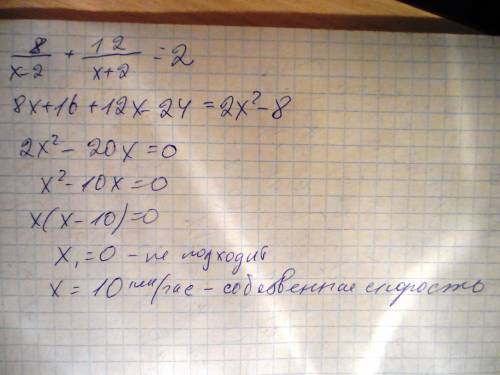 8/(x-2) + 12/(x+2) = 2
8x+16+12x-24 = 2x²-8
2x²-20x=0
x²-10x=0
x(x-10)=0
x₁=0 - не подходит
x = 10 км/час - собственная скорость